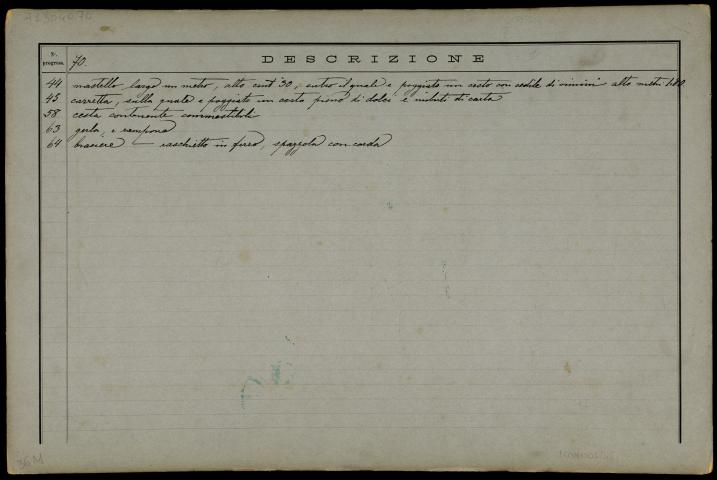 N.º progress.
70.
DESCRIZIONE
44 mastello largo un metro, alto cent 30, entro il quale e poggiato un cesto con sedile di vimini alto metri 1.80
45 carretta, sulla quale e poggiato un cesto pieno di dolci e imbuti di carta
58 cesta contenente commestibili
63 gerla, e rampone
64 braciere — raschietto in ferro, spazzola con corda
36M